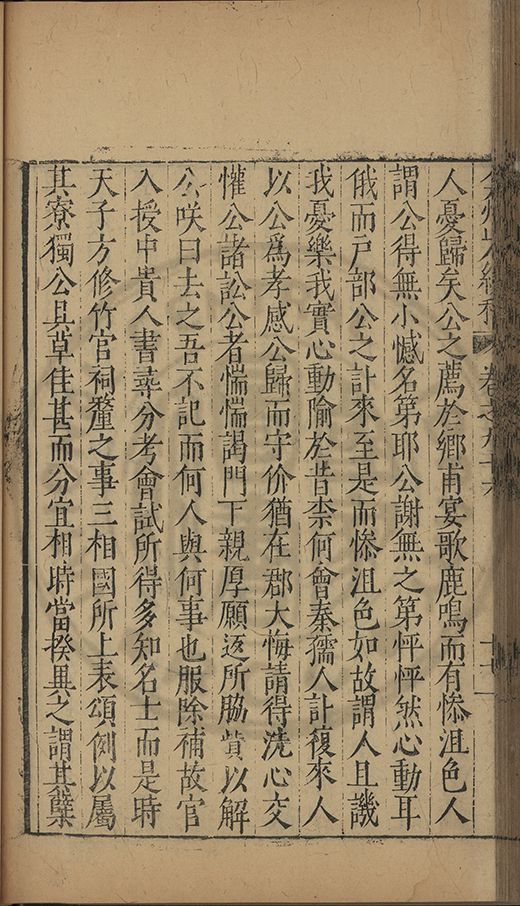 人憂歸矣公之薦於鄉甫宴歌鹿鳴而有慘沮色人
謂公得無小憾名第耶公謝無之第怦怦然心動耳
俄而戸部公之計來至是而慘沮色如故謂人且譏
我憂樂我實心動隃於昔柰何會秦孺人計複來人
以公爲孝感公歸而守价猶在郡大悔請得洗心交
懽公諸訟公者惴惴謁門下親厚願返所脇貲以解
公咲曰去之吾不記而何人與何事也服除補故官
入授中貴人書尋分考會試所得多知名士而是時
天子方修竹官祠釐之事三相國所上表頌例以屬
其寮獨公具草佳甚而分宜相時當揆異之謂其櫱